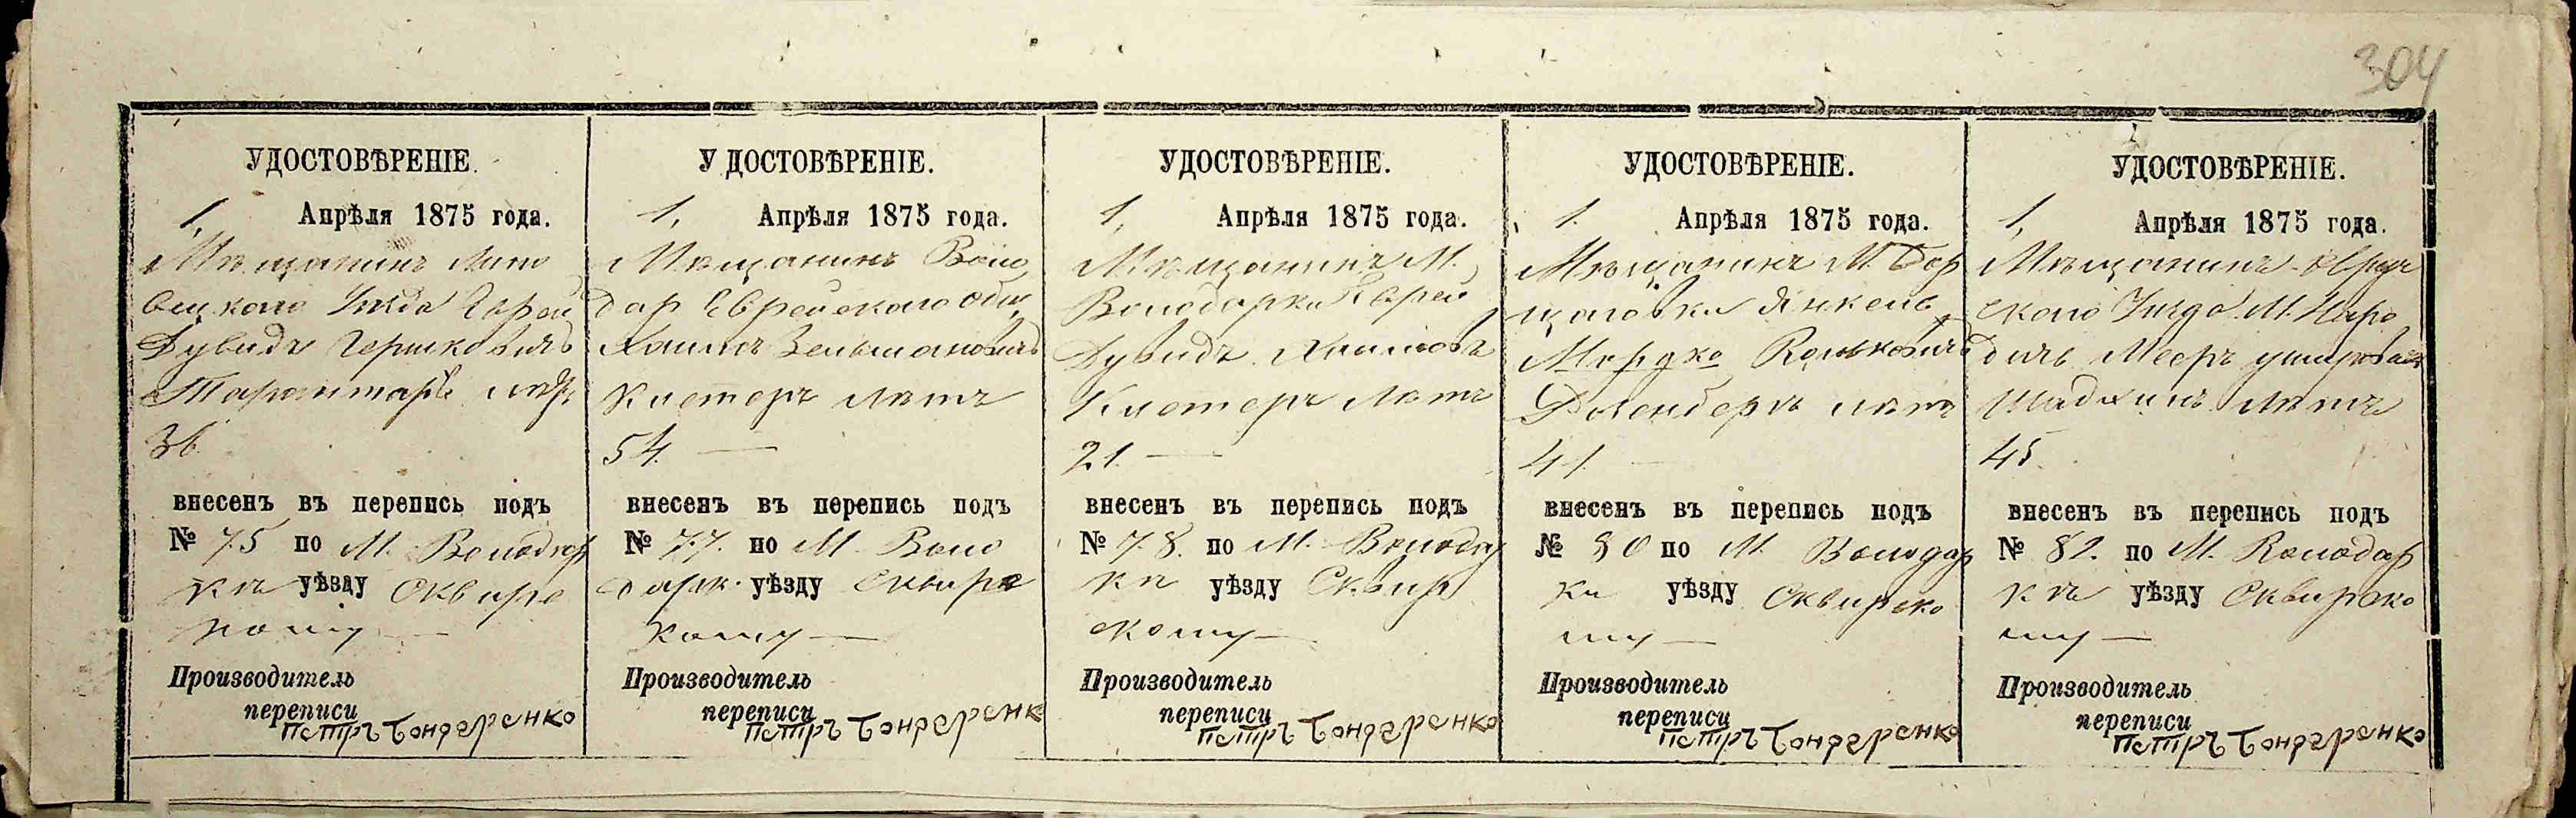 304
УДОСТОВѢРЕНІЕ.
1, Апрѣля 1875 года.
Мѣщанинъ Липо
вецкаго Уѣзда Еврей
Дувидъ Гершковичъ
лѣтъ
36.
внесенъ въ перепись подъ
№ 75 по М. Володар
кѣ уѣзду Сквирс
кому —
Производитель
переписи
Петръ Бондаренко
УДОСТОВѢРЕНІЕ.
1, Апрѣля 1875 года.
Мѣщанинъ Воло
дар Еврейскаго Общ
Хаимъ Зельмановичъ
Клетеръ лѣтъ
54. —
внесенъ въ перепись подъ
№ 77. по М. Воло
дарк. уѣзду Сквирс
кому —
Производитель
переписи
Петръ Бондаренк
УДОСТОВѢРЕНІЕ.
1, Апрѣля 1875 года.
Мѣщанинъ М.
Володарки Еврей
Дувидъ Хаимовъ
Клетеръ лѣтъ
21. —
внесенъ въ перепись подъ
№ 78. по М. Володар
кѣ уѣзду Сквир
скому —
Производитель
переписи
Петръ Бондаренко
УДОСТОВѢРЕНІЕ.
1. Апрѣля 1875 года.
Мѣщанинъ М. Бор
щаговки Янкель
Мордко
лѣтъ
41. —
внесенъ въ перепись подъ
№ 80 по М. Володар
кѣ уѣзду Сквирско
му —
Производитель
переписи
Петръ Бондаренко
УДОСТОВѢРЕНІЕ.
1, Апрѣля 1875 года.
Мѣщанинъ Овруч
скаго Уѣзда М. Наро
дичъ Мееръ
лѣтъ
45.
внесенъ въ перепись подъ
№ 82. по М. Володар
кѣ уѣзду Сквирско
му —
Производитель
переписи
Петръ Бондаренко